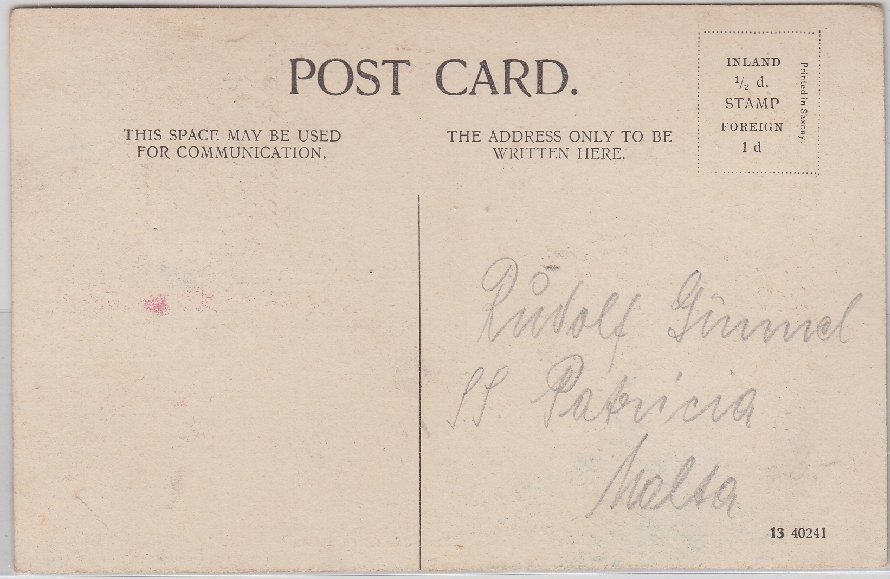 POST CARD.
THIS SPACE MAY BE USED
FOR COMMUNICATION.
THE ADDRESS ONLY TO BE
WRITTEN HERE.
INLAND
½ d.
STAMP
FOREIGN
1 d
Printed in Saxony.
Rudolf Gimmel
SS Patricia
Malta
13 40241